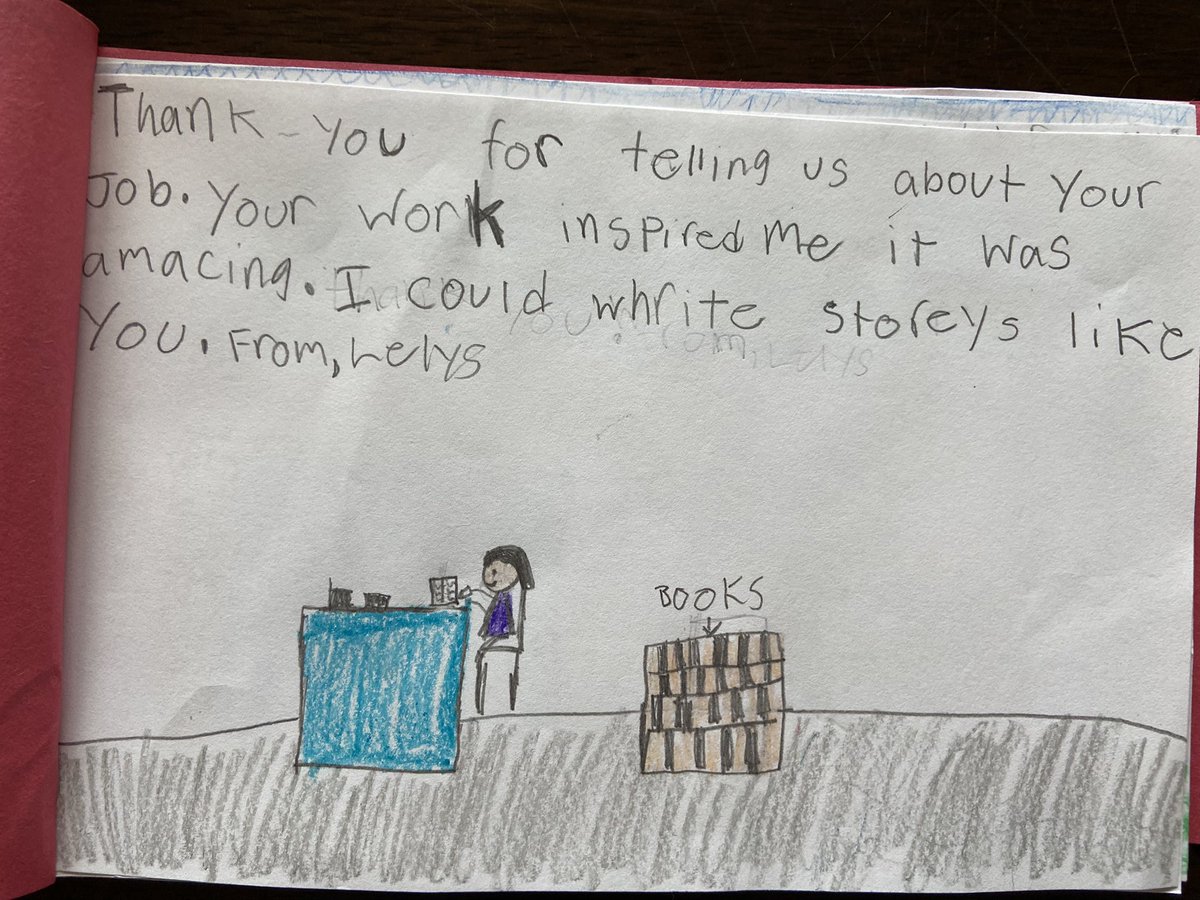 Thank-you for telling us about your
Job. Your work inspired me it was
amacing. I could whrite storeys like
You. From, Lelys
BOOKS